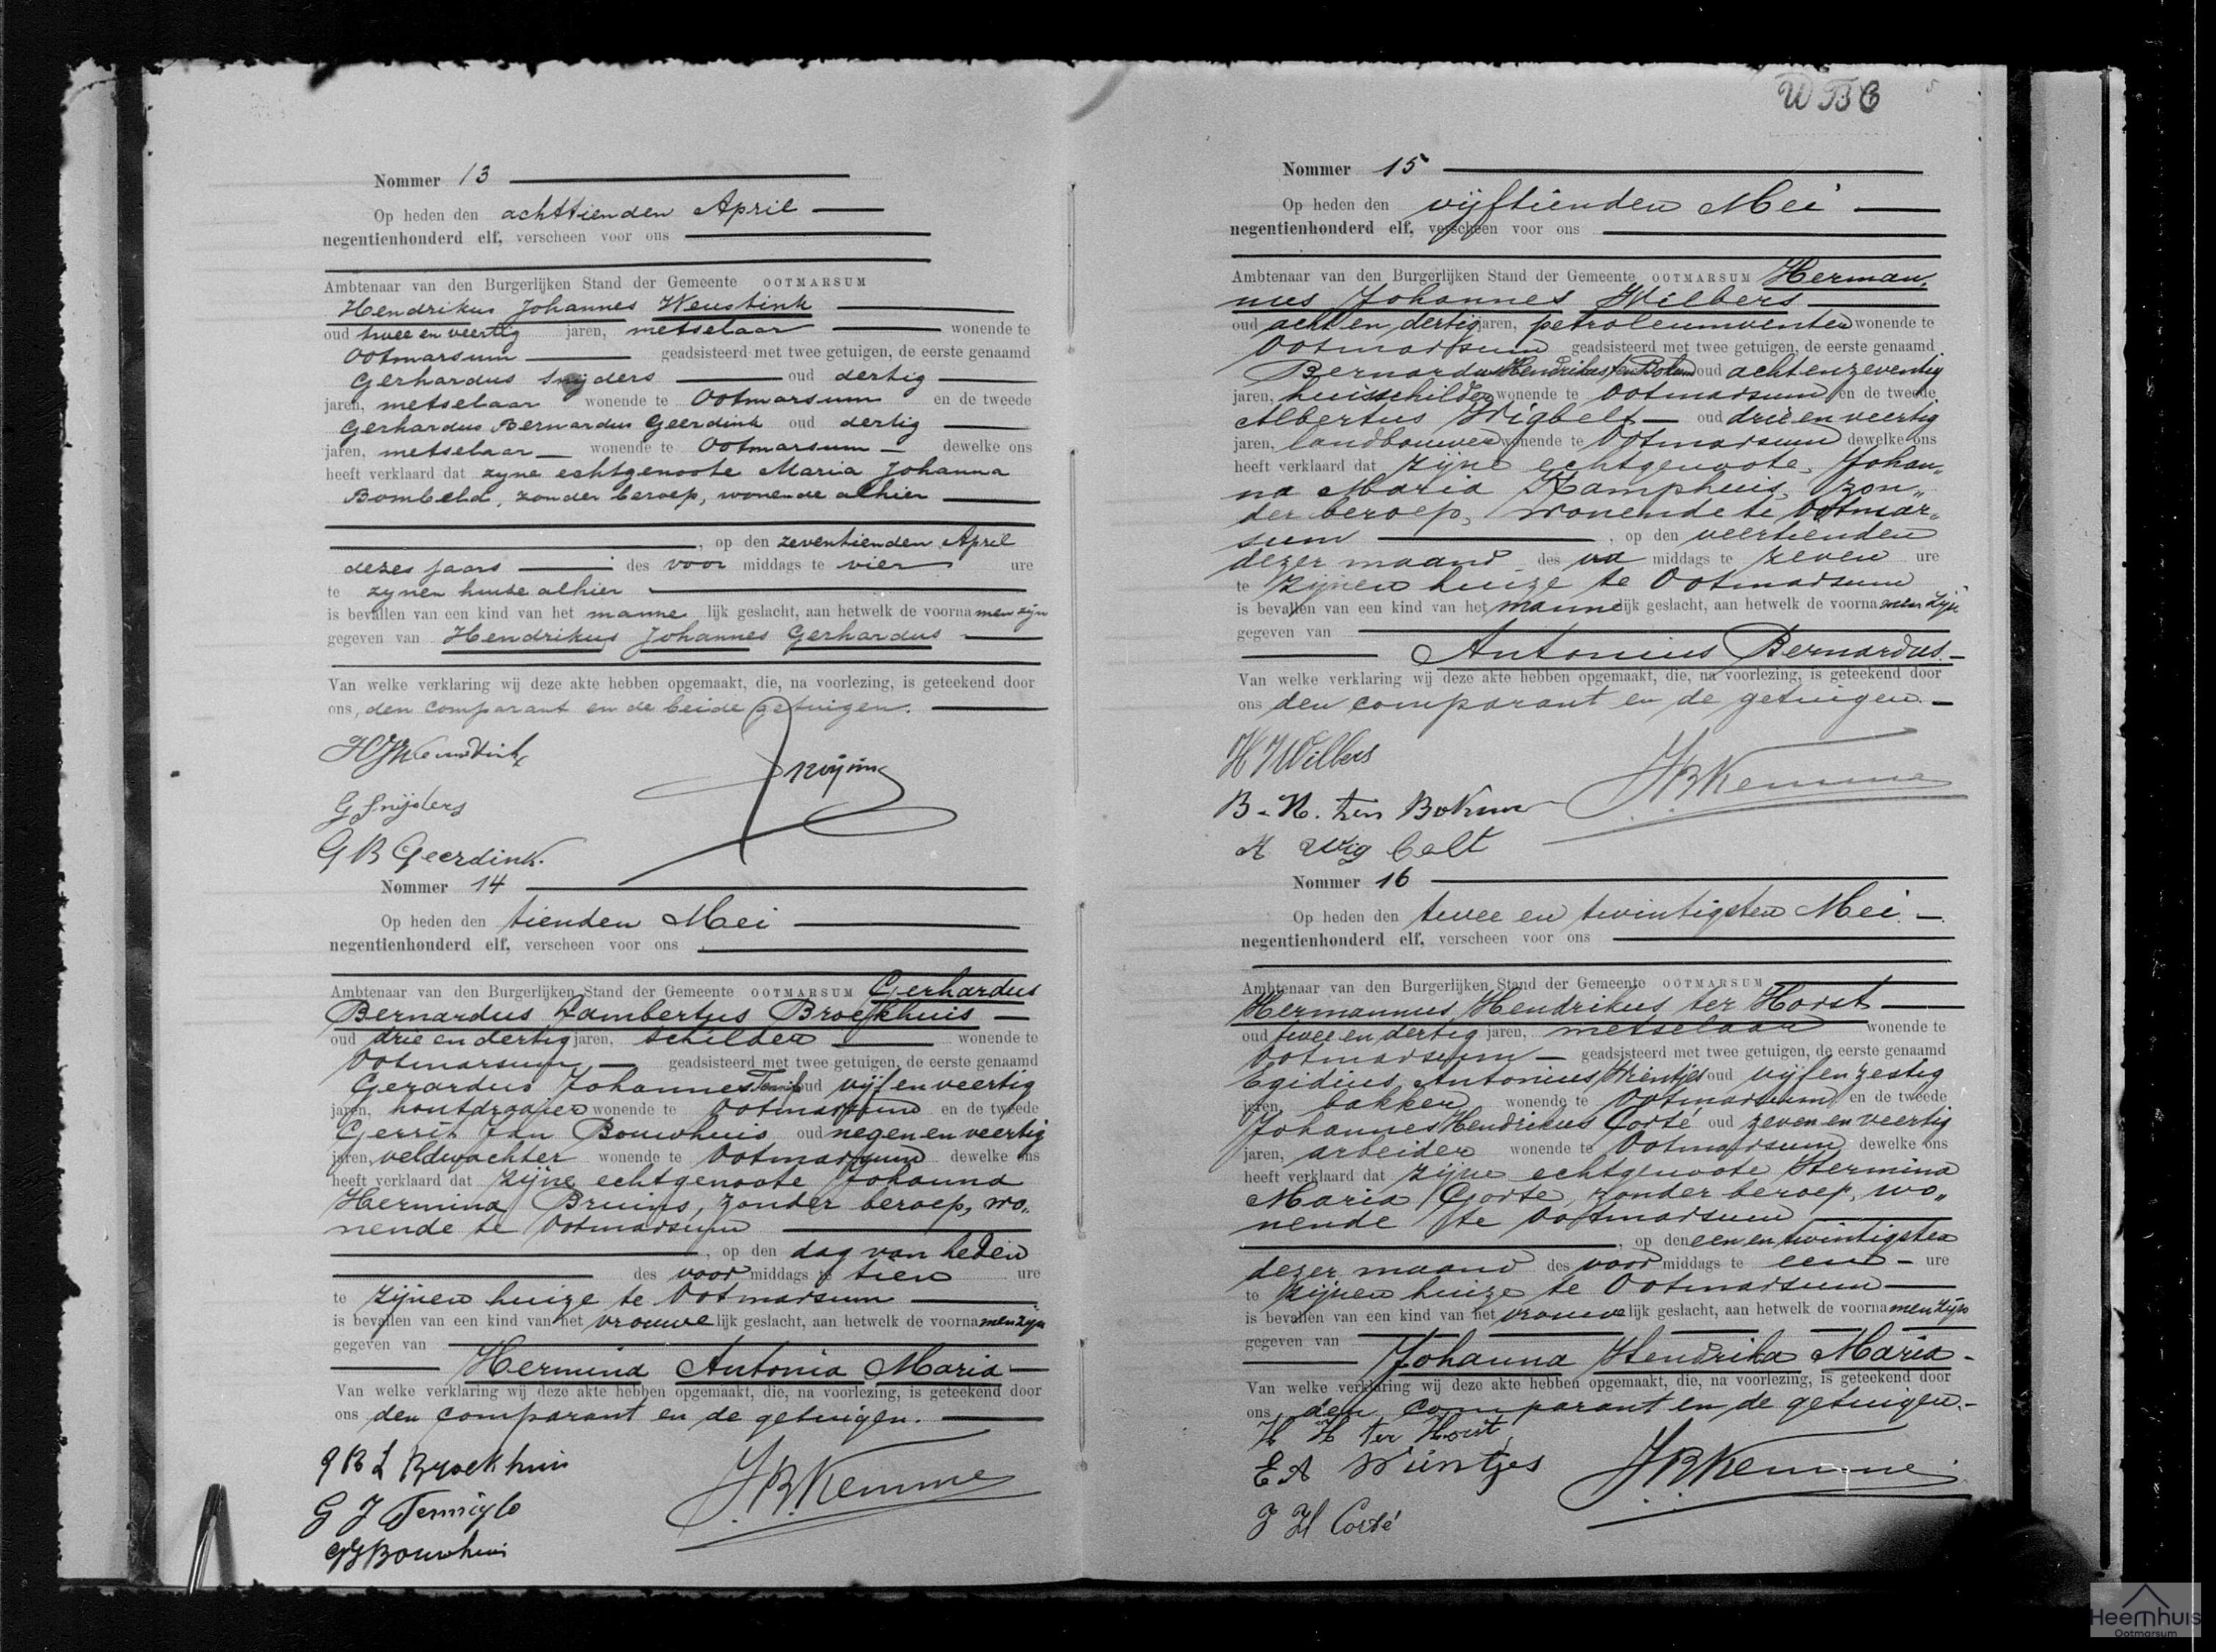 Nommer 13
Op heden den achttienden April
negentienhonderd elf, verscheen voor ons
Ambtenaar van den Burgerlijken Stand der Gemeente OOTMARSUM
Hendrikus Johannes Weustink
oud twee en veertig jaren, metselaar wonende te
Ootmarsum geadsisteerd met twee getuigen, de eerste genaamd
Gerhardus Snijders oud dertig
jaren, metselaar wonende te Ootmarsum en de tweede
Gerhardus Bernardus Geerdink oud dertig
jaren, metselaar wonende te Ootmarsum dewelke ons
heeft verklaard dat zyne echtgenoote Maria Johanna
zonder beroep, wonende alhier
, op den zeventienden April
dezes jaars des voor middags te vier ure
te zynen huize alhier
is bevallen van een kind van het manne lijk geslacht, aan hetwelk de voorna men zyn
gegeven van Hendrikus Johannes Gerhardus
Van welke verklaring wij deze akte hebben opgemaakt, die, na voorlezing, is geteekend door
ons, den comparant en de beide getuigen.
HJWeustink
G Snijders
G B Geerdink.
Nommer 14
Op heden den tienden Mei
negentienhonderd elf, verscheen voor ons
Ambtenaar van den Burgerlijken Stand der Gemeente OOTMARSUM Gerhardus
Bernardus Lambertus Broekhuis
oud drie en dertig jaren, schilder wonende te
Ootmarsum geadsisteerd met twee getuigen, de eerste genaamd
Gerardus Johannes oud vijf en veertig
jaren, houtdraaier wonende te Ootmarsum en de tweede
Gerrit Jan Bouwhuis oud negen en veertig
jaren, veldwachter wonende te Ootmarsum dewelke ons
heeft verklaard dat zijne echtgenoote Johanna
Hermina Bruins, zonder beroep, wo„
nende te Ootmarsum
, op den dag van heden
des voor middags te tien ure
te zijnen huize te Ootmarsum
is bevallen van een kind van het vrouwe lijk geslacht, aan hetwelk de voorna men zijn
gegeven van
Hermina Antonia Maria
Van welke verklaring wij deze akte hebben opgemaakt, die, na voorlezing, is geteekend door
ons den comparant en de getuigen.
G B L Broekhuis
J.B.Kemme
G J
GJBouwhuis
W B C
Nommer 15
Op heden den vijftienden Mei
negentienhonderd elf, verscheen voor ons
Ambtenaar van den Burgerlijken Stand der Gemeente OOTMARSUM Herman„
nus Johannes Wilbers
oud acht en dertig jaren, petroleumventer wonende te
Ootmarsum geadsisteerd met twee getuigen, de eerste genaamd
Bernardus Hendrikus ten Bokum oud acht en zeventig
jaren, huisschilder wonende te Ootmarsum en de tweede
Albertus Wigbelt oud drie en veertig
jaren, landbouwer wonende te Ootmarsum dewelke ons
heeft verklaard dat zijne echtgenoote, Johan„
na Maria Kamphuis, zon„
der beroep, wonende te Ootmar„
sum , op den veertienden
dezer maand des na middags te zeven ure
te zijnen huize te Ootmarsum
is bevallen van een kind van het manne lijk geslacht, aan hetwelk de voorna men zijn
gegeven van
Antonius Bernardus.
Van welke verklaring wij deze akte hebben opgemaakt, die, na voorlezing, is geteekend door
ons den comparant en de getuigen.
H J Wilbers
J.B.Kemme
B. H. ten Bokum
A Wigbelt
Nommer 16
Op heden den twee en twintigsten Mei.
negentienhonderd elf, verscheen voor ons
Ambtenaar van den Burgerlijken Stand der Gemeente OOTMARSUM
Hermannus Hendrikus ter Horst
oud twee en dertig jaren, metselaar wonende te
Ootmarsum geadsisteerd met twee getuigen, de eerste genaamd
Egidius Antonius Wientjes oud vijf en zestig
jaren, bakker wonende te Ootmarsum en de tweede
Johannes Hendrikus Corté oud zeven en veertig
jaren, arbeider wonende te Ootmarsum dewelke ons
heeft verklaard dat zijne echtgenoote Hermina
Maria zonder beroep, wo„
nende te Ootmarsum
, op den een en twintigsten
dezer maand des voor middags te een ure
te zijnen huize te Ootmarsum
is bevallen van een kind van het vrouwe lijk geslacht, aan hetwelk de voorna men zijn
gegeven van
Johanna Hendrika Maria
Van welke verklaring wij deze akte hebben opgemaakt, die, na voorlezing, is geteekend door
ons den comparant en de getuigen.
H H ter Horst
E A Wientjes
J.B.Kemme
J H Corté
Heemhuis
Ootmarsum